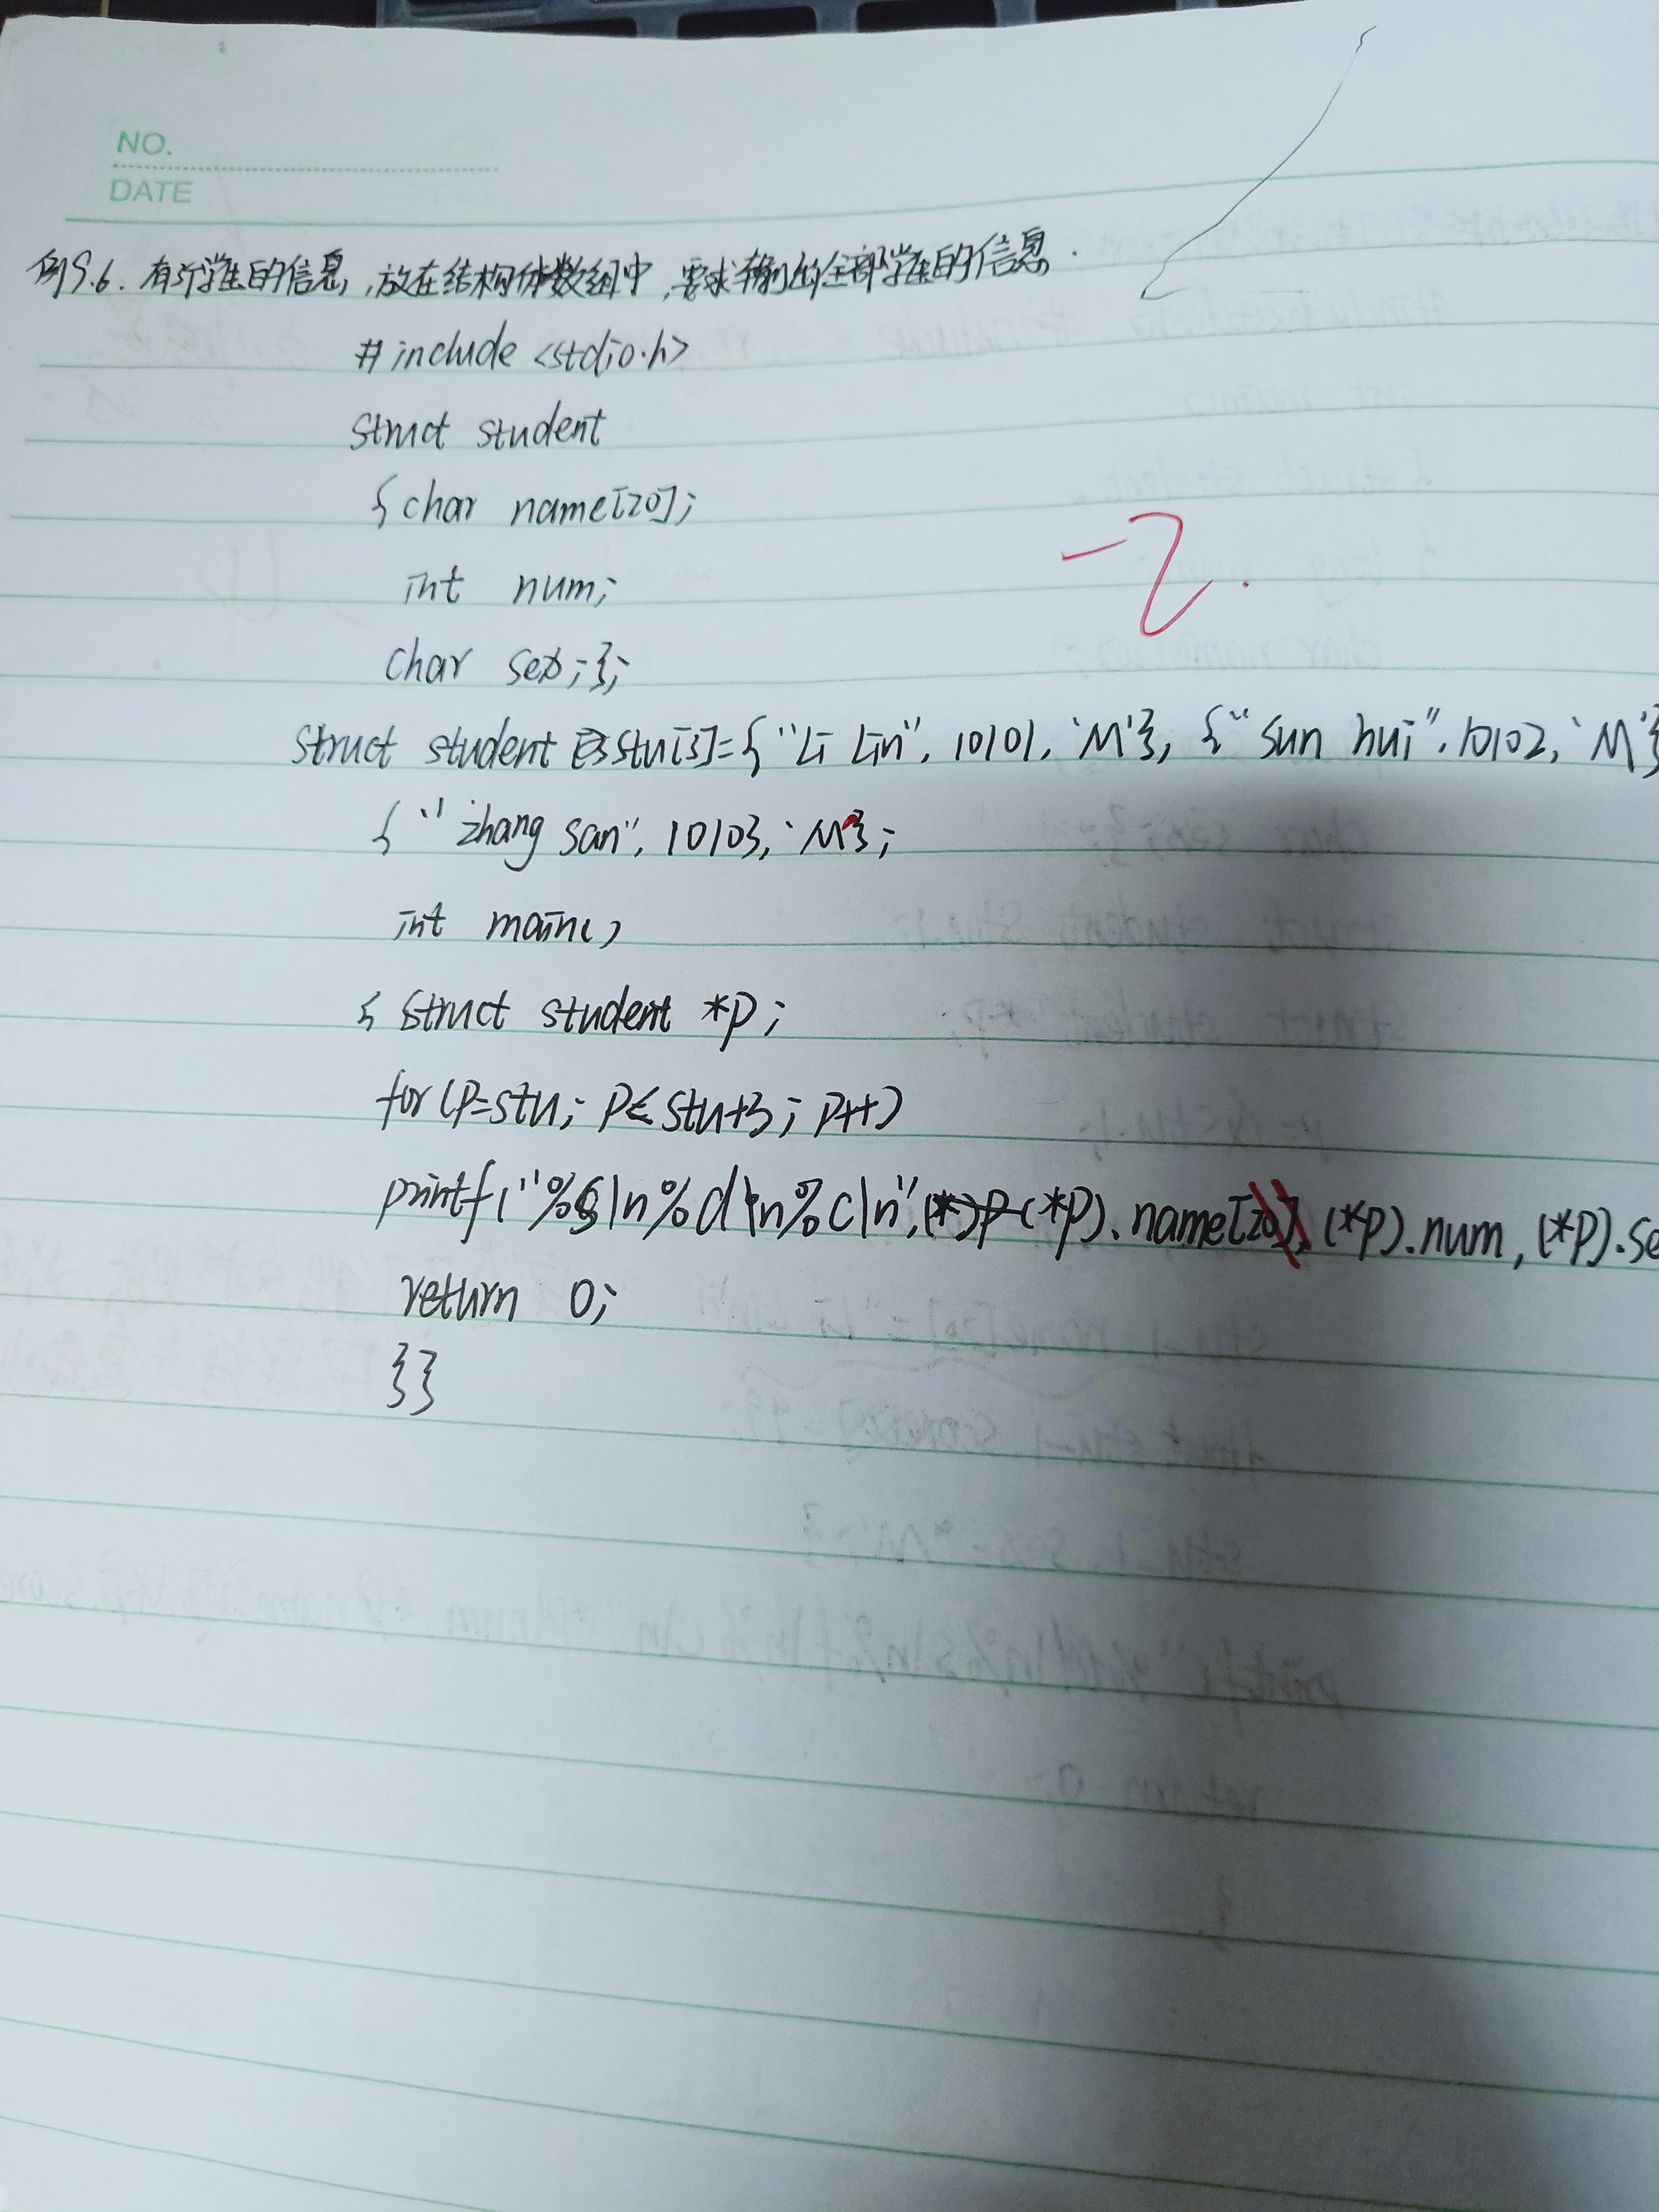 NO.
DATE
例9.6. 有3个学生的信息,放在结构体数组中,要求输出全部学生的信息.
#include <stdio.h>
struct student
{char name[20];
int num;
char sex;};
struct student stu[3]={"Li Lin", 10101, 'M'}, {"Sun hui", 10102, 'M'}
{"zhang san", 10103, 'M'};
-2.
int main()
{struct student *p;
for(p=stu; p≤stu+3; p++)
printf("%s\n%d\n%c\n", (*p).name[20], (*p).num, (*p).se
return 0;
}}